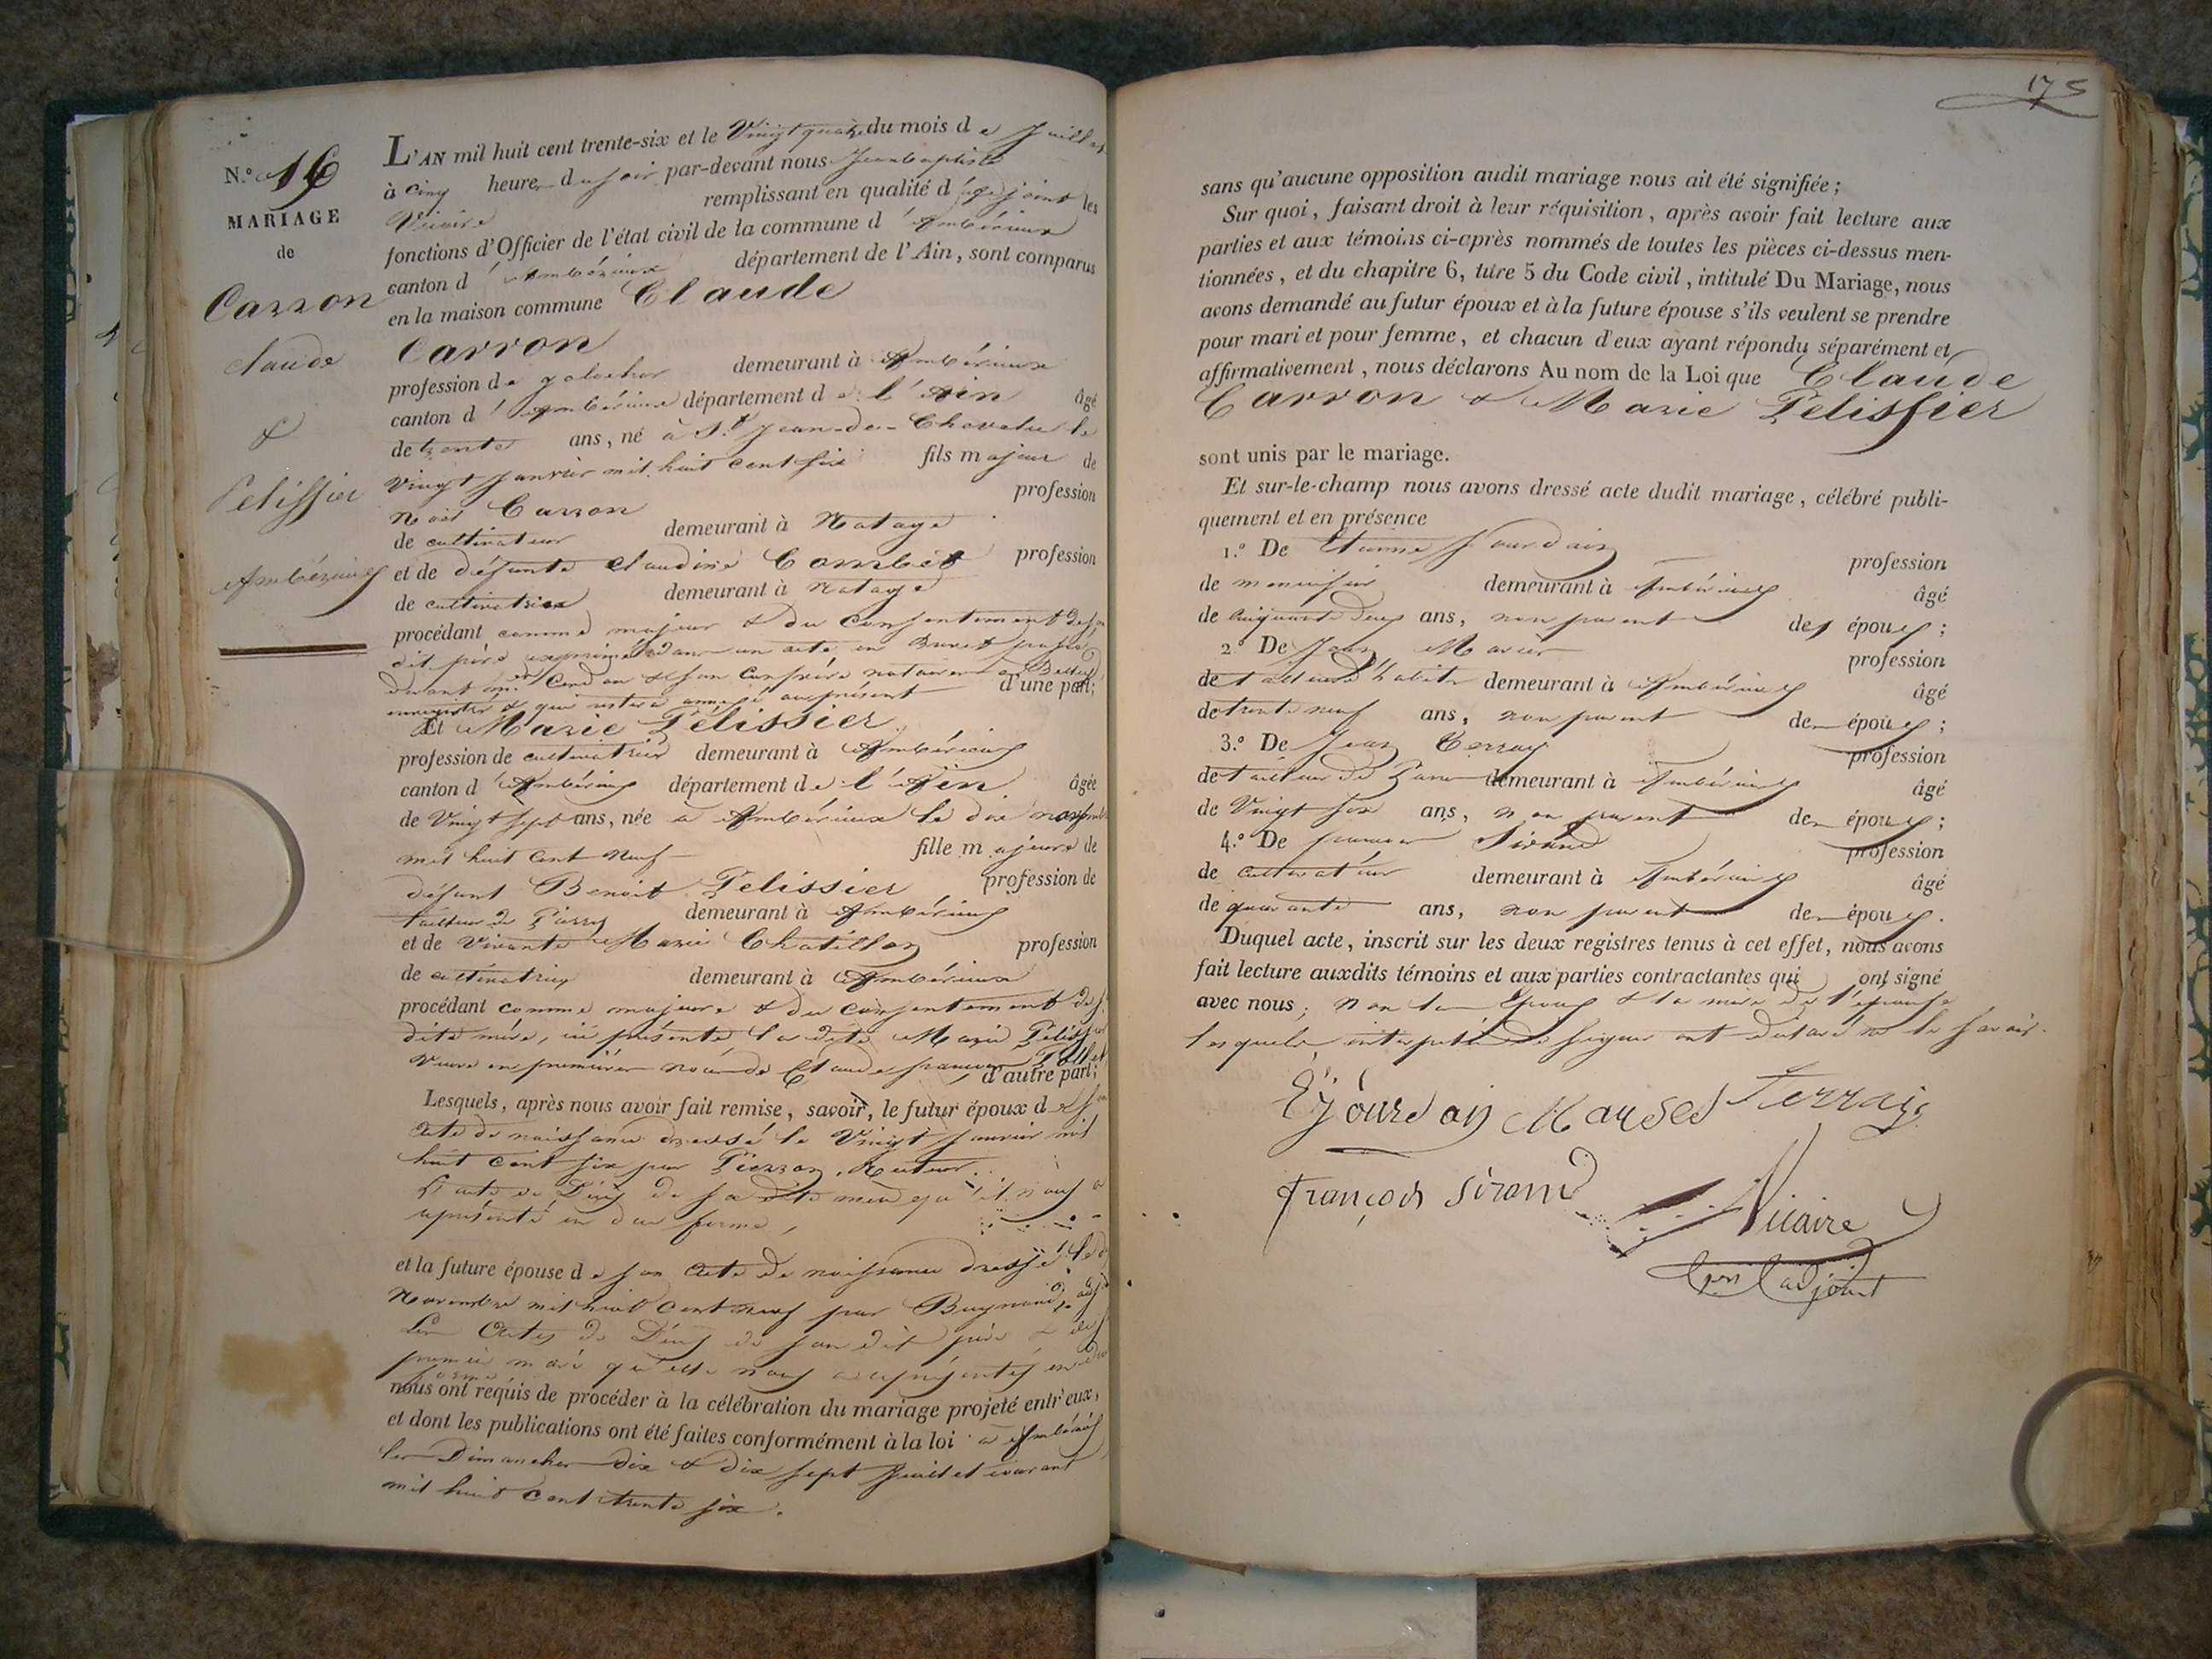 N.° 16
MARIAGE
de
Carron
claude
&
Pelissier
Ambérieux
L'AN mil huit cent trente-six et le Vingt quatre du mois de Juillet
à cinq heures du soir par-devant nous Jean baptiste
Vicaire remplissant en qualité d'adjoint les
fonctions d'Officier de l'état civil de la commune d'Ambérieux
canton d'Ambérieux département de l'Ain, sont comparus
en la maison commune Claude
Carron
profession de galocher demeurant à Ambérieux
canton d'Ambérieux département de l'Ain âgé
de trente ans, né à St. Jean-de-Chevelu le
Vingt Janvier mil huit cent six fils majeur de
Noël Carron profession
de cultivateur demeurant à Natage
et de défunte Claudine Combet profession
de cultivatrice demeurant à Natage
procédant comme majeur & du consentement de son
dit père exprimé dans un acte en Brevet passé
devant me. Cendon & son confrère notaires à Belley
enregistré & qui restera annexé au présent d'une part;
Et Marie Pélissier
profession de cultivatrice demeurant à Ambérieux
canton d'Ambérieux département de l'Ain âgée
de Vingt sept ans, née à Ambérieux le dix novembre
mil huit cent neuf fille majeure de
défunt Benoit Pelissier profession de
tailleur de Pierres demeurant à Ambérieux
et de Vivante Marie Chatillon profession
de cultivatrice demeurant à Ambérieux
procédant comme majeure & du consentement de sa
dite mère, ici présente la dite Marie Pélissier
Veuve en premières noces de Claude francois d'autre part;
Lesquels, après nous avoir fait remise, savoir, le futur époux de son
acte de naissance dressé le Vingt Janvier mil
huit cent six par Pierron, Recteur.
L'acte de Décès de sa dite mère qu'il nous a
représenté en due forme,
et la future épouse de son acte de naissance dressé le dix
Novembre mil huit cent neuf par
Les Actes de Décès de son dit père & de son
premier mari qu'elle nous a représentés en due
forme
nous ont requis de procéder à la célébration du mariage projeté entr'eux,
et dont les publications ont été faites conformément à la loi à Ambérieux
les Dimanches dix & dix sept Juillet courant
mil huit cent trente six.
175
sans qu'aucune opposition audit mariage nous ait été signifiée;
Sur quoi, faisant droit à leur réquisition, après avoir fait lecture aux
parties et aux témoins ci-après nommés de toutes les pièces ci-dessus men-
tionnées, et du chapitre 6, titre 5 du Code civil, intitulé Du Mariage, nous
avons demandé au futur époux et à la future épouse s'ils veulent se prendre
pour mari et pour femme, et chacun d'eux ayant répondu séparément et
affirmativement, nous déclarons Au nom de la Loi que Claude
Carron & Marie Pelissier
sont unis par le mariage.
Et sur-le-champ nous avons dressé acte dudit mariage, célébré publi-
quement et en présence
1.° De Etienne Jourdain profession
de menuisier demeurant à Ambérieux âgé
de cinquante deux ans, non parent des époux;
2.° De Jean profession
de tailleur d'habits demeurant à Ambérieux âgé
de trente neuf ans, non parent des époux;
3.° De Jean Terray profession
de tailleur de Pierres demeurant à Ambérieux âgé
de Vingt six ans, non parent des époux;
4.° De francois Sirand profession
de cultivateur demeurant à Ambérieux âgé
de quarante ans, non parent des époux.
Duquel acte, inscrit sur les deux registres tenus à cet effet, nous avons
fait lecture auxdits témoins et aux parties contractantes qui ont signé
avec nous, non les époux & la mère de l'épouse
lesquels interpellés de signer ont déclaré ne le savoir.
E Jourdan Terray
françois Sirand Vicaire
adjoint